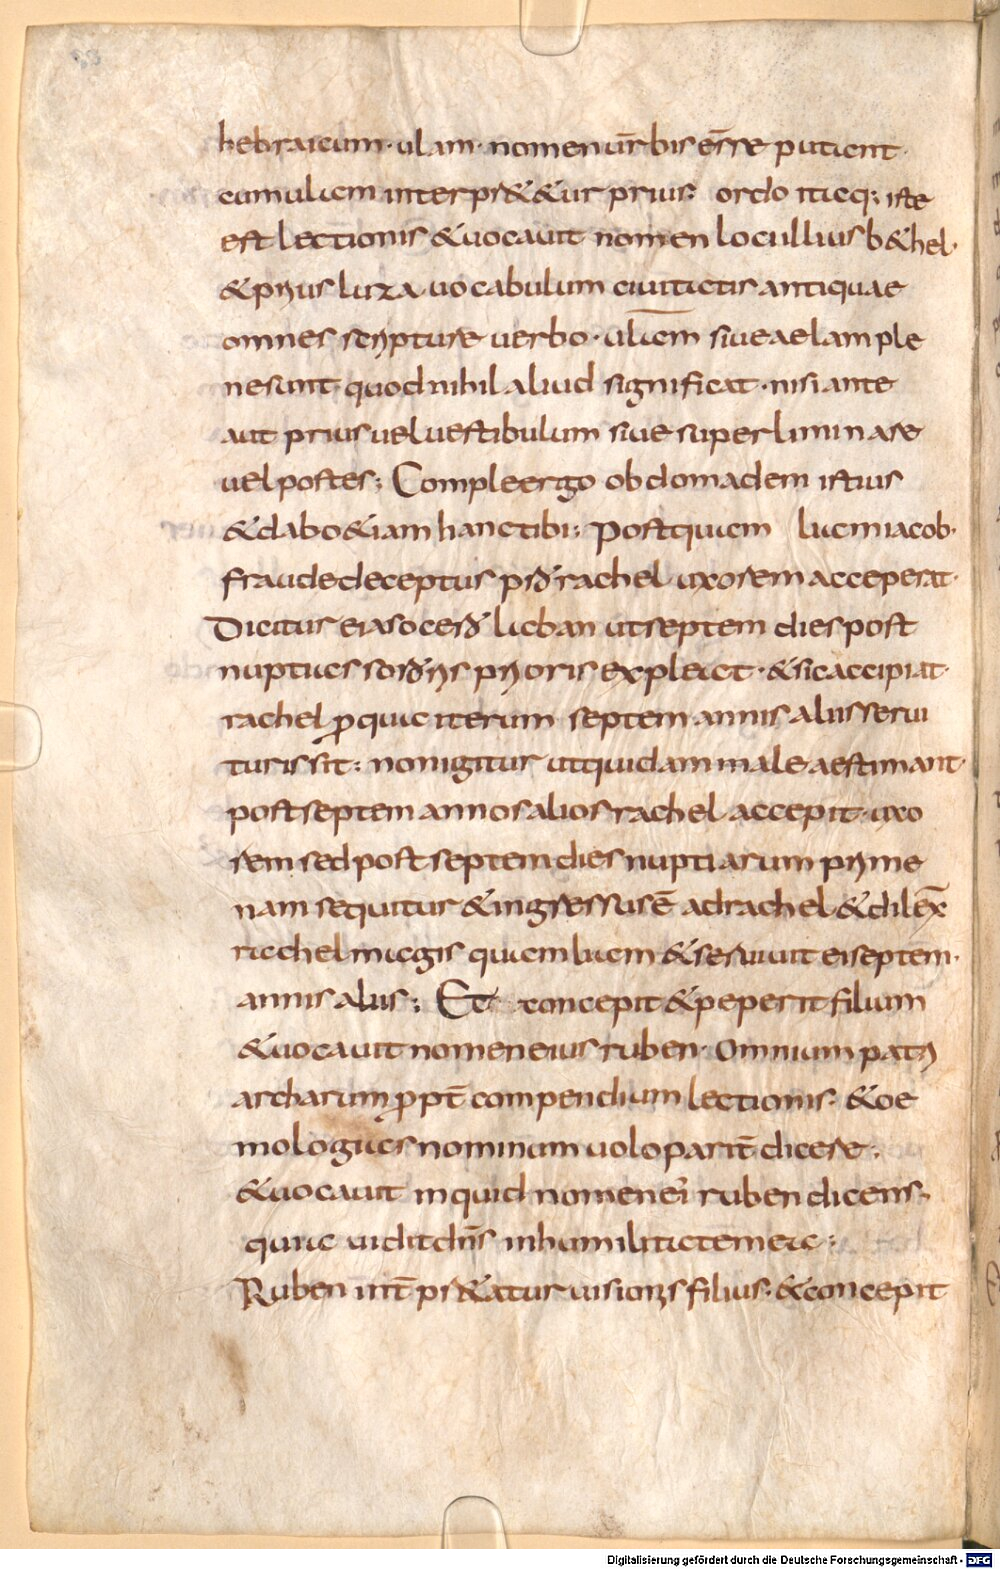 hebraicum · ulam · nomen ūrbis ēsse putant ·
cum ulam interpr&&ur prius · ordo itaq; iste
est lectionis &uocauit nomen loci illius b&hel ·
&prius luza uocabulum ciuitatis antiquae
omnes scripture uerbo · ulam siue aelam ple
ne sunt quod nihil aliud significat · nisi ante
aut prius uel uestibulum siue superliminare
uel postes ; Comple ergo obdomadem istius
&dabo &iam hanc tibi ; postquam liam iacob ·
fraude deceptus rachel uxorem acceperat ·
Dicitur ei a socero laban ut septem dies post
nuptias sororis prioris expleat · &sic accipiat ·
rachel ꝓ qua iterum septem annis aliis serui
turis sit ; non igitur ut quidam male aestimant ·
post septem annos alios rachel accepit uxo
rem sed post septem dies nuptiarum prime
nam sequitur &ingressus ē ad rachel &dilex̄
rachel magis quam liam &seruiuit ei septem ·
annis aliis ; Et concepit &peperit filium
&uocauit nomen eius ruben · Omnium patri
archarum ꝓpt̄ compendium lectionis · &oe
mologias nominum uolo parit̄ dicere ;
&uocauit inquid nomen ei ruben dicens ·
quia uidit dn̄s in humilitatem meā ;
Ruben int̄pr&atur uisionis filius · &concepit
Digitalisierung gefördert durch die Deutsche Forschungsgemeinschaft - DFG